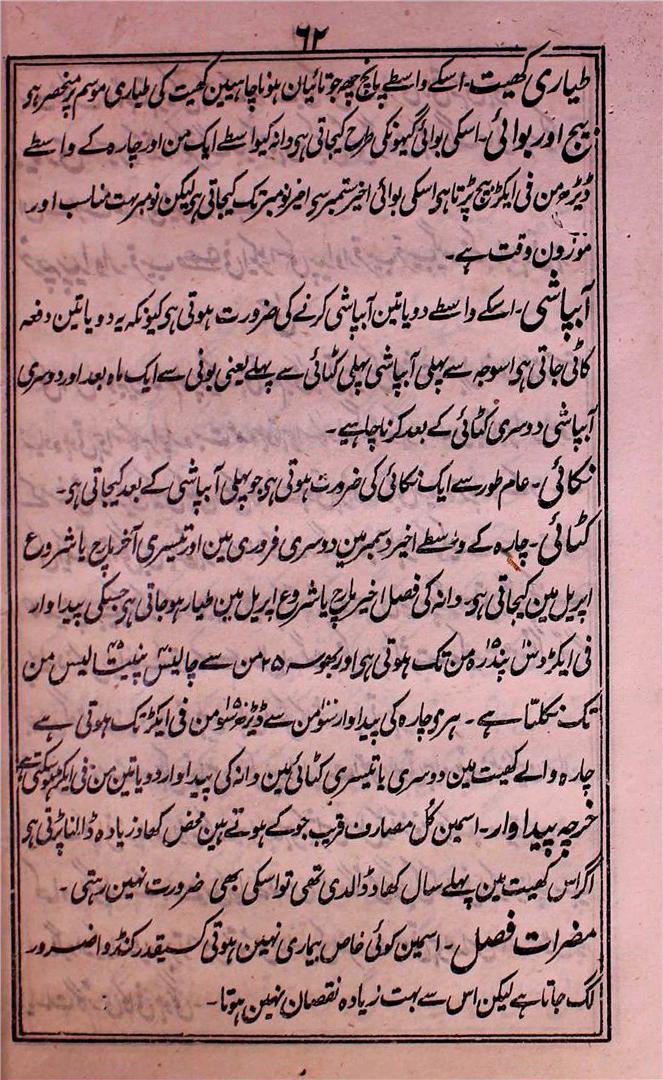 ۶۲
طیاری کھیت۔ اسکے واسطے پانچ چھ جوتائیان ہونا چاہیین کھیت کی طیاری موسم پر منحصر ہو
بیج اور بوائی۔ اسکی بوائی گیہونکی طرح کیجاتی ہی دانہ کیواسطے ایک من اور چارہ کے واسطے
ڈیڑھ من فی ایکڑ بیج پڑتا ہی اسکی بوائی اخیر ستمبر سی اخیر نومبر تک کیجاتی ہی لیکن نومبر بہت مناسب اور
موزون وقت ہے۔
آبپاشی۔ اسکے واسطے دو یا تین آبپاشی کرنے کی ضرورت ہوتی ہی کیونکہ یہ دو یا تین دفعہ
کاٹی جاتی ہی اسوجہ سے پہلی آبپاشی پہلی کٹائی سے پہلے یعنی بونی سے ایک ماہ بعد اور دوسری
آبپاشی دوسری کٹائی کے بعد کرنا چاہیے۔
نکائی۔ عام طور سے ایک نکائی کی ضرورت ہوتی ہی جو پہلی آبپاشی کے بعد کیجاتی ہی۔
کٹائی۔ چارہ کے واسطے اخیر دسمبر مین دوسری فروری مین اور تیسری آخر مارچ یا شروع
اپریل مین کیجاتی ہی۔ دانہ کی فصل اخیر مارچ یا شروع اپریل مین طیار ہو جاتی ہی جسکی پیداوار
فی ایکڑ دس پندرہ من تک ہوتی ہی اور بھوسہ ۲۵ من سے چالیس پینتالیس من
تک نکلتا ہے۔ ہری چارہ کی پیداوار سو من سے ڈیڑھ سو من فی ایکڑ تک ہوتی ہے
چارہ والے کھیت مین دوسری یا تیسری کٹائی مین دانہ کی پیداوار دو یا تین من فی ایکڑ ہو سکتی ہے
خرچہ پیداوار۔ اسمین کل مصارف قریب جو کے ہوتے ہین محض کھاد زیادہ ڈالنا پڑتی ہی
اگر اس کھیت مین پہلے سال کھاد ڈالدی تھی تو اسکی بھی ضرورت نہین رہتی۔
مضرات فصل۔ اسمین کوئی خاص بیماری نہین ہوتی کسیقدر کنڈوا ضرور
لگ جاتا ہے لیکن اس سے بہت زیادہ نقصان نہین ہوتا۔